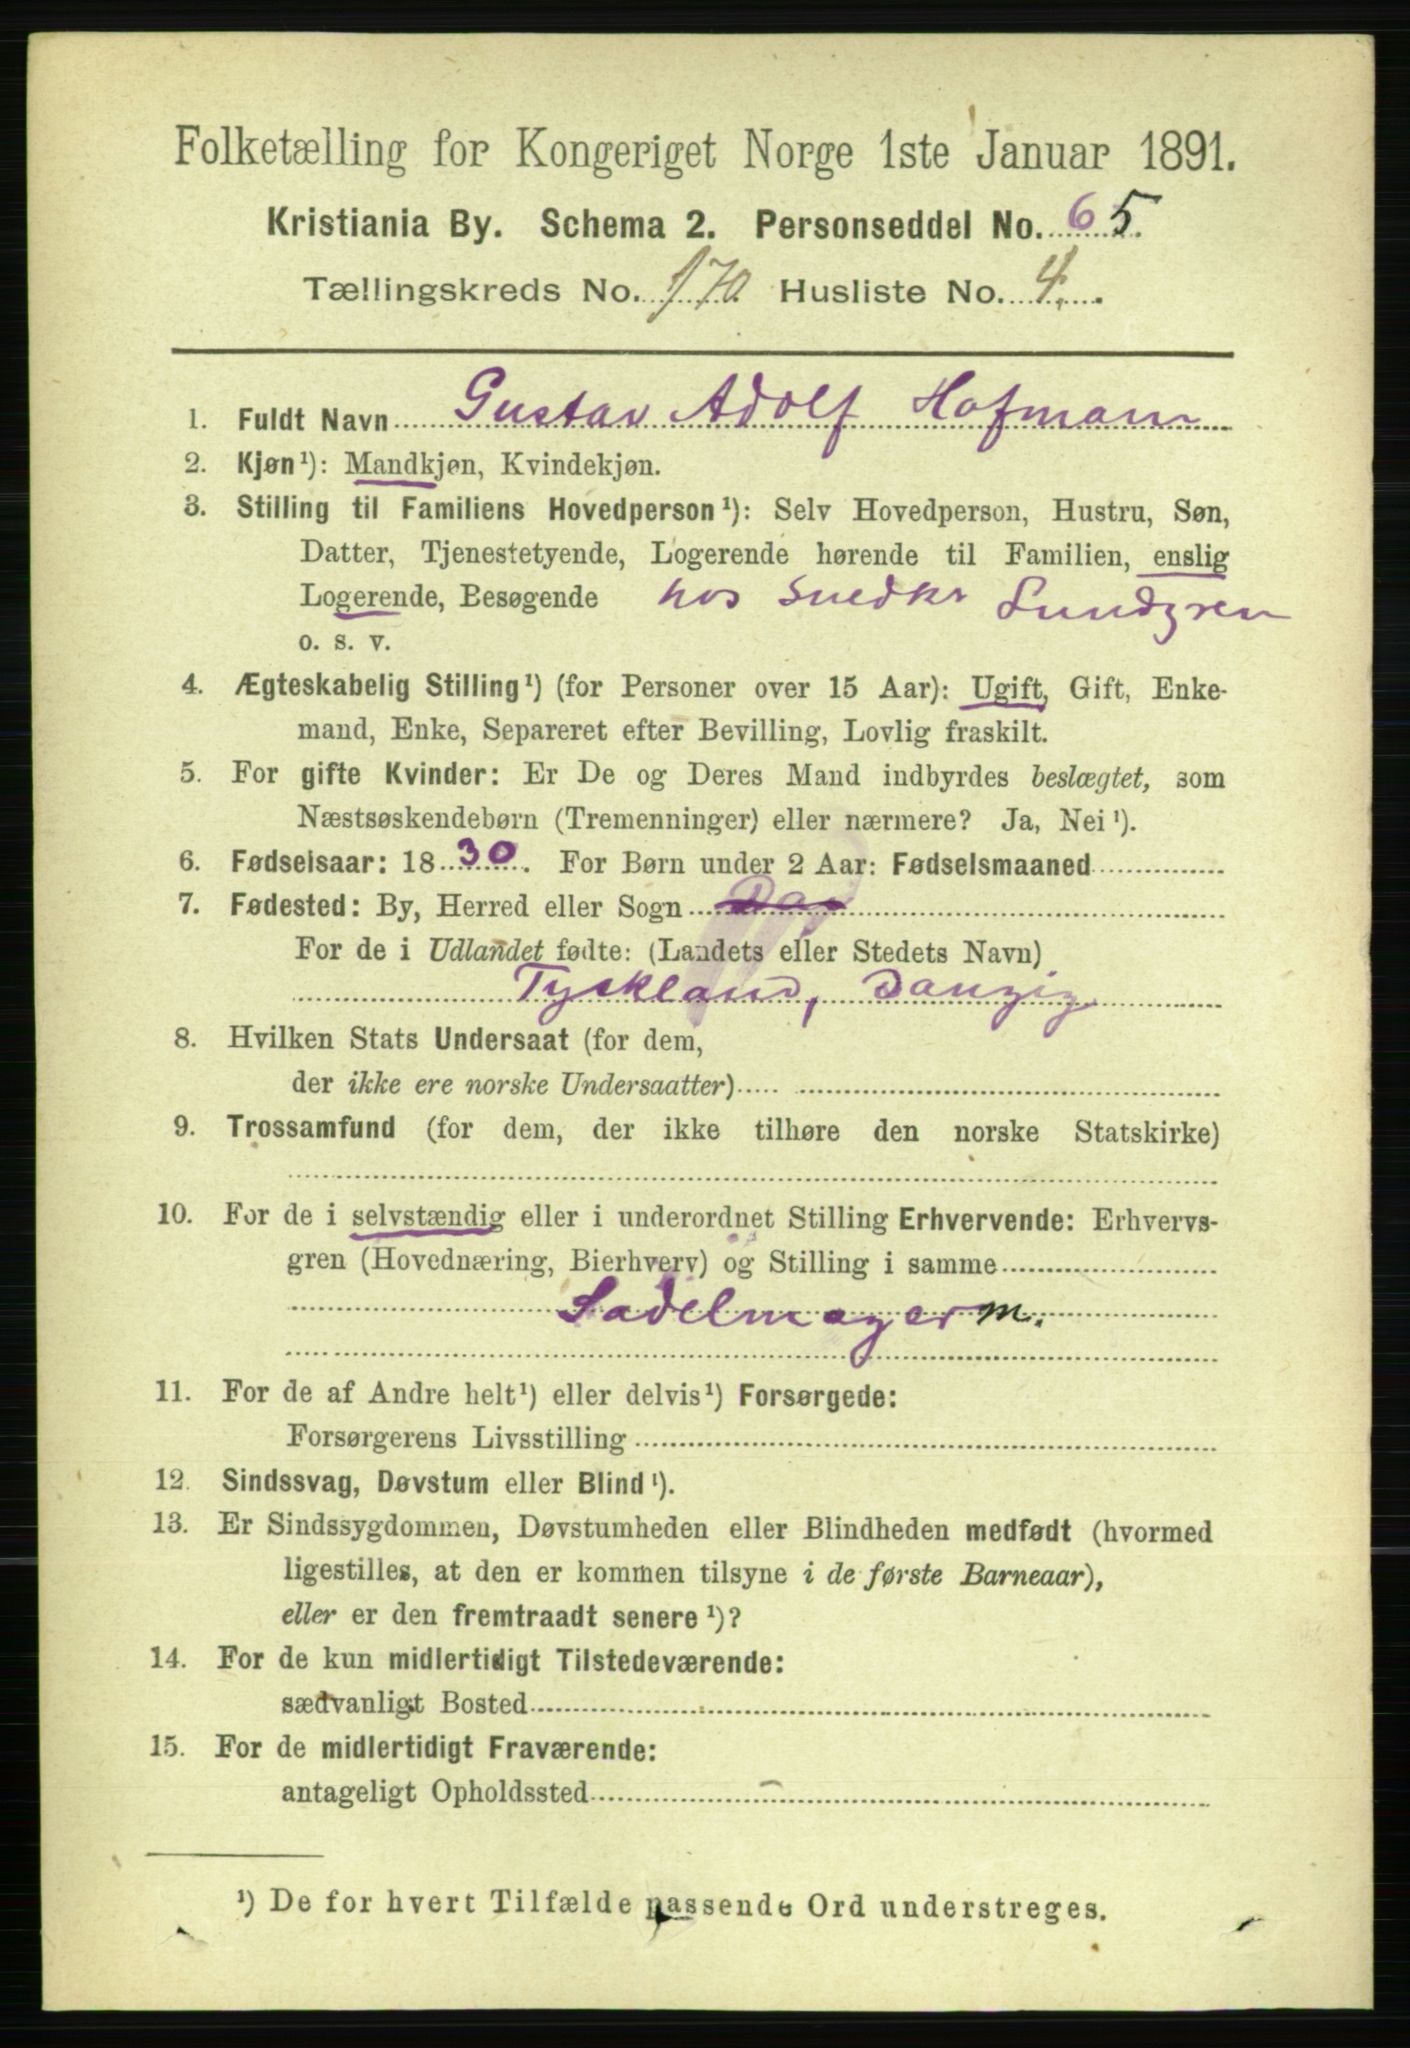 Folketælling for Kongeriget Norge 1ste Januar 1891.
Kristiania By. Schema 2. Personseddel No. 65.
Tællingskreds No. 170. Husliste No. 4.
1. Fuldt Navn Gustav Adolf Hofmann
2. Kjøn¹): Mandkjøn, Kvindekjøn.
3. Stilling til Familiens Hovedperson¹): Selv Hovedperson, Hustru, Søn,
Datter, Tjenestetyende, Logerende hørende til Familien, enslig
Logerende, Besøgende hos Snedkr Lundgren
o. s. v.
4. Ægteskabelig Stilling¹) (for Personer over 15 Aar): Ugift, Gift, Enke-
mand, Enke, Separeret efter Bevilling, Lovlig fraskilt.
5. For gifte Kvinder: Er De og Deres Mand indbyrdes beslægtet, som
Næstsøskendebørn (Tremenninger) eller nærmere? Ja, Nei¹).
6. Fødselsaar: 1830. For Børn under 2 Aar: Fødselsmaaned
7. Fødested: By, Herred eller Sogn
For de i Udlandet fødte: (Landets eller Stedets Navn)
Tyskland, Danzig
8. Hvilken Stats Undersaat (for dem,
der ikke ere norske Undersaatter)
9. Trossamfund (for dem, der ikke tilhøre den norske Statskirke)
10. For de i selvstændig eller i underordnet Stilling Erhvervende: Erhvervs-
gren (Hovednæring, Bierhverv) og Stilling i samme
Sadelmager m.
11. For de af Andre helt¹) eller delvis¹) Forsørgede:
Forsørgerens Livsstilling
12. Sindssvag, Døvstum eller Blind¹).
13. Er Sindssygdommen, Døvstumheden eller Blindheden medfødt (hvormed
ligestilles, at den er kommen tilsyne i de første Barneaar),
eller er den fremtraadt senere¹)?
14. For de kun midlertidigt Tilstedeværende:
sædvanligt Bosted
15. For de midlertidigt Fraværende:
antageligt Opholdssted
¹) De for hvert Tilfælde passende Ord understreges.